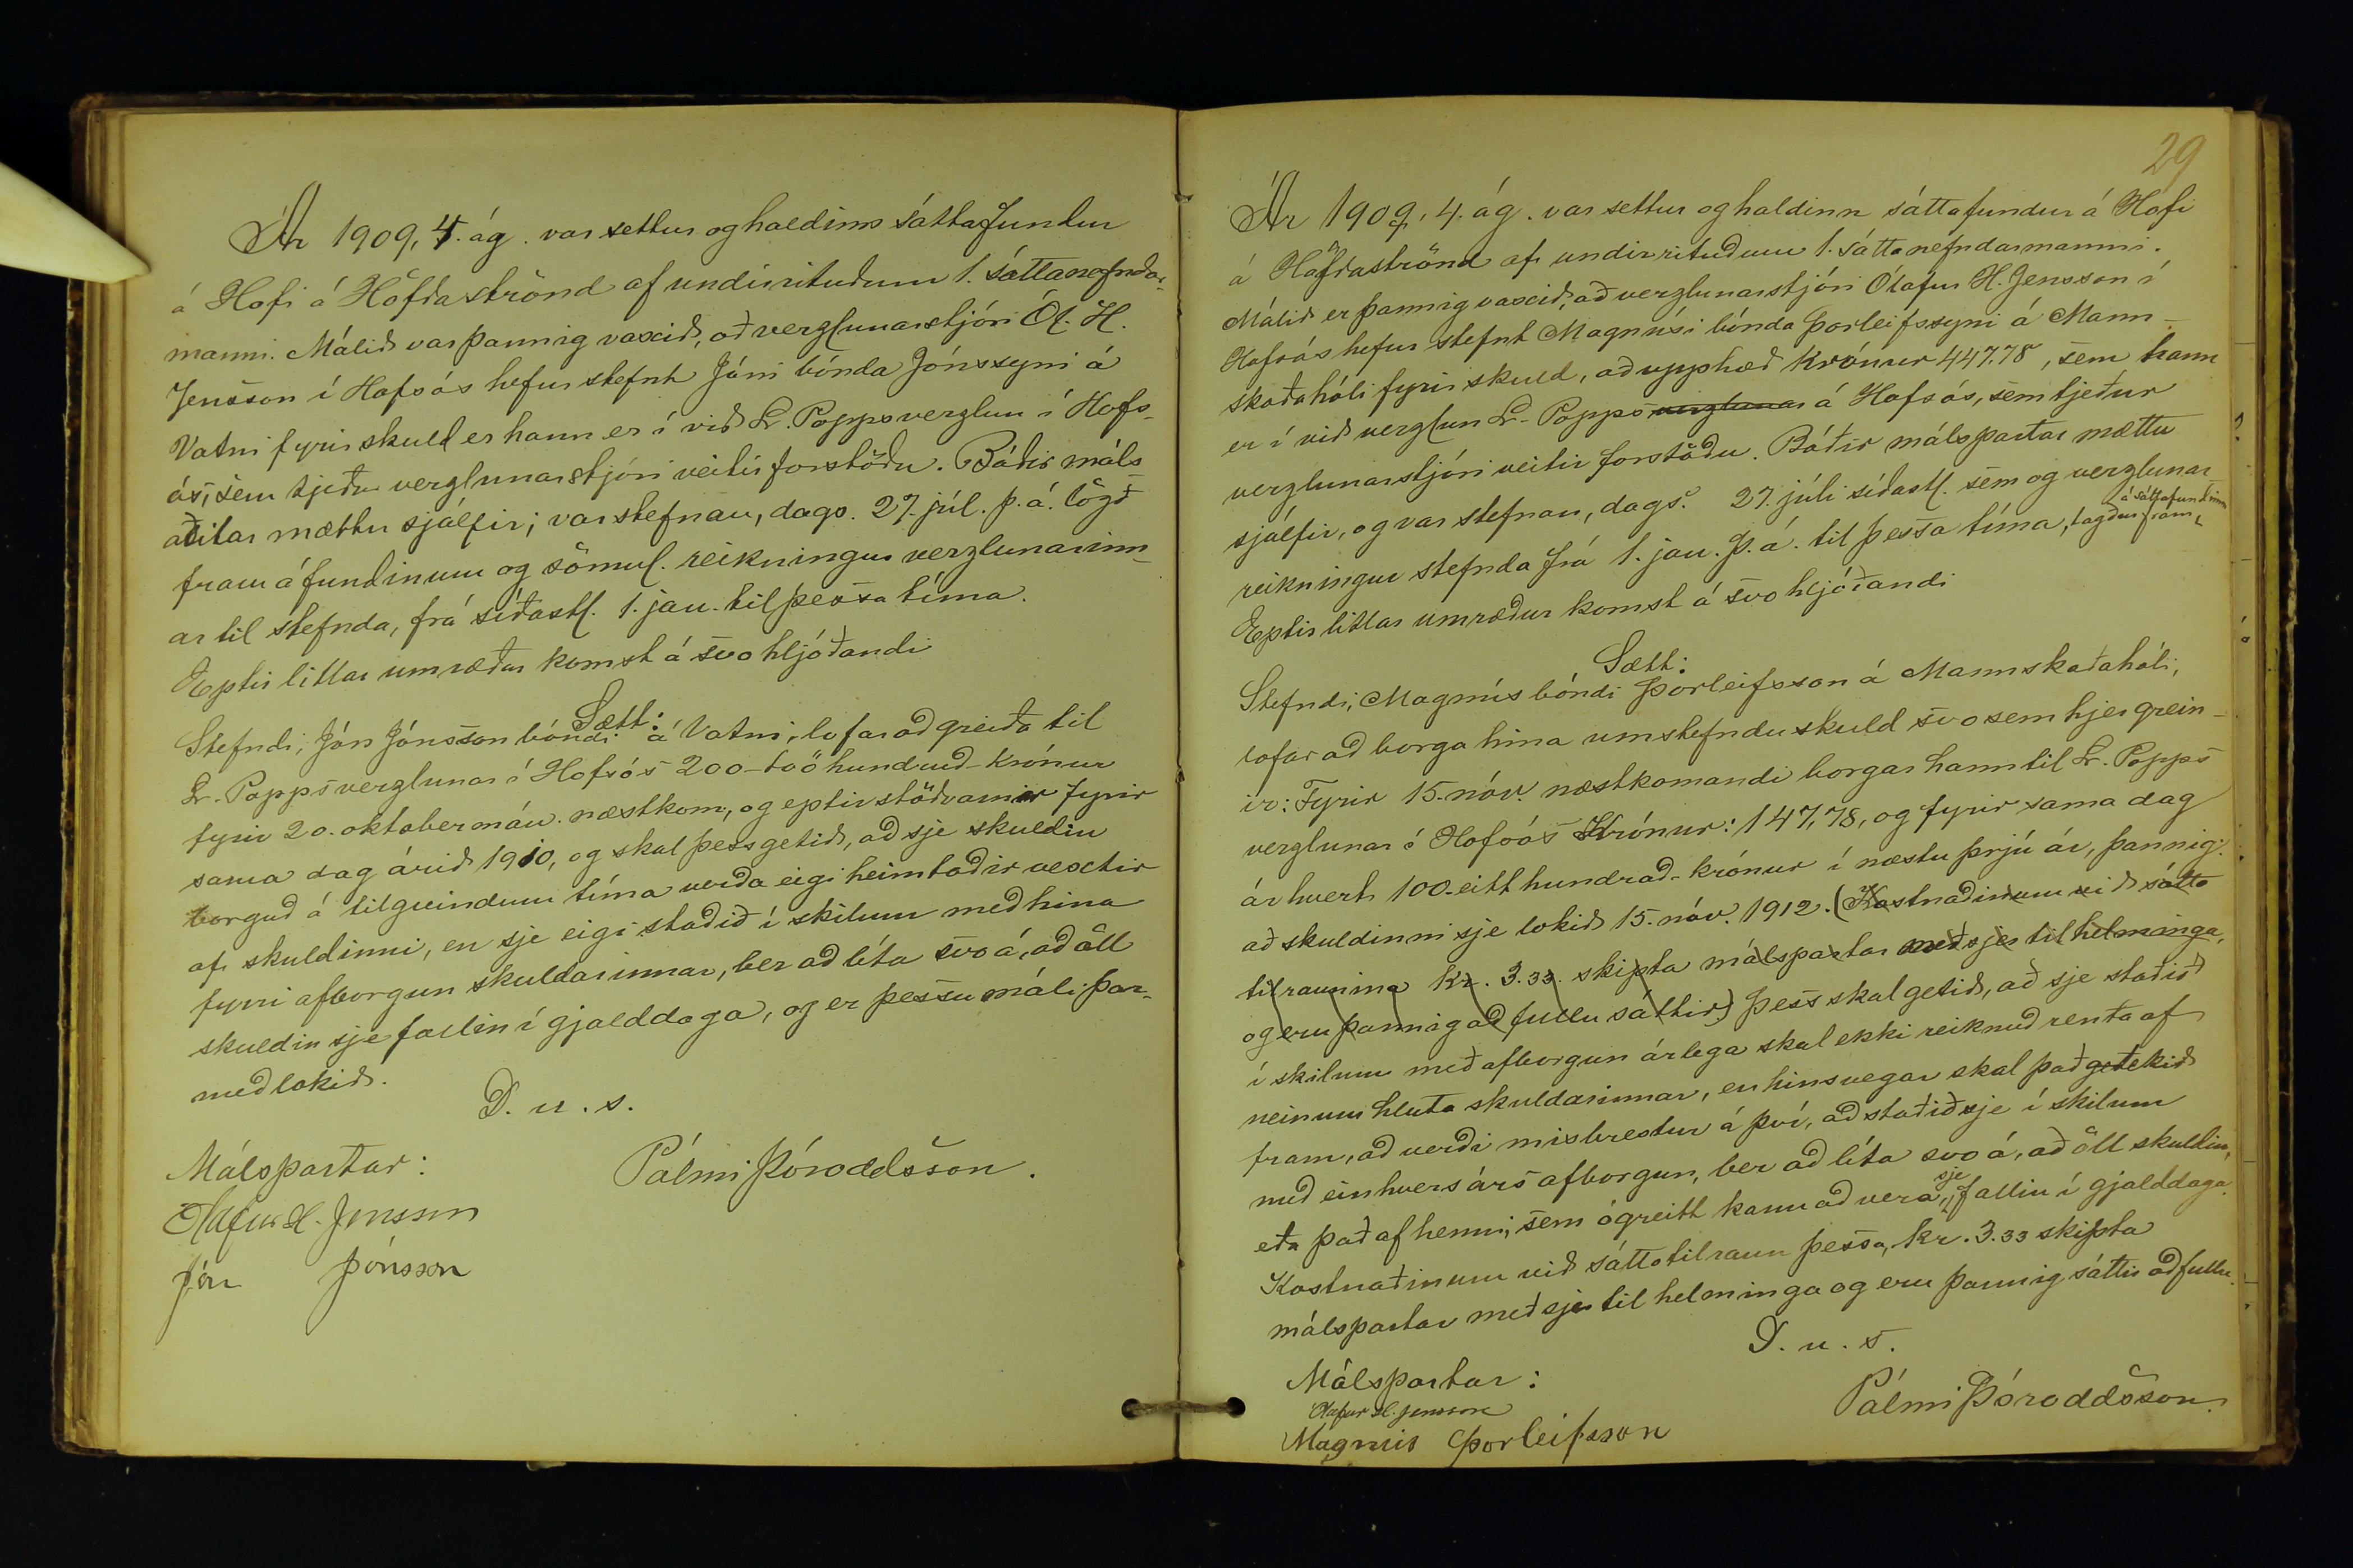 Ár 1909, 4. ág. var settur og haldinn sáttafundur
á Hofi á Höfðaströnd af undirrituðum 1. sáttanefndar-
manni. Málið var þannig vaxið, að verzlunarstjóri Ól. H.
Jensson í Hofsós hefur stefnt Jóni bónda Jónssyni á
Vatni fyrir skuld er hann er í við L. Popps verzlun í Hofs-
ós, sem tjeður verzlunarstjóri veitir forstöðu. Báðir máls-
aðilar mættu sjálfir; var stefnan, dags. 27. júl. þ.á. lögð
fram á fundinum og sömul. reikningur verzlunarinn-
ar til stefnda, frá síðastl. 1. jan. til þessa tíma.
Eptir litlar umræður komst á svo hljóðandi
Sætt:
Stefndi, Jón Jónsson bóndi á Vatni, lofar að greiða til
L. Popps verzlunar í Hofsós 200 - tvö hundruð - krónur
fyrir 20. októbermán. næstkom., og eptirstöðvarnar fyrir
sama dag árið 1910, og skal þess getið, að sje skuldin
borguð á tilgreindum tíma verða eigi heimtaðir vextir
af skuldinni, en sje eigi staðið í skilum með hina
fyrri afborgun skuldarinnar, ber að líta svo á, að öll
skuldin sje fallin í gjalddaga, og er þessu máli þar-
með lokið.
D. u. s.
Pálmi Þóroddsson.
Málspartar:
Ólafur H. Jensson
Jón Jónsson
29
Ár 1909, 4. ág. var settur og haldinn sáttafundur á Hofi
á Höfðaströnd af undirrituðum 1. sáttanefndarmanni.
Málið er þannig vaxið, að verzlunarstjóri Ólafur H. Jensson í
Hofsós hefur stefnt Magnúsi bónda Þorleifssyni á Mann-
skaðahóli fyrir skuld, að upphæð krónur 447.78, sem hann
er í við verzlun L. Popps verzlunar á Hofsós, sem tjeður
verzlunarstjóri veitir forstöðu. Báðir málspartar mættu
sjálfir, og var stefnan, dags. 27. júli síðastl. sem og verzlunar-
reikningur stefnda frá 1. jan. þ.á. til þessa tíma, lagður fram á sáttafundinum
Eptir litlar umræður komst á svo hljóðandi
Sætt:
Stefndi, Magnús bóndi Þorleifsson á Mannskaðahóli,
lofar að borga hina umstefndu skuld svo sem hjer grein-
ir: Fyrir 15. nóv. næstkomandi borgar hann til L. Popps
verzlunar á Hofsós Krónur: 147,78, og fyrir sama dag
ár hvert 100 - eitt hundrað - krónur í næstu þrjú ár, þannig
að skuldinni sje lokið 15. nóv. 1912. (Kostnaðinum við sátta
tilraunina kr. 3.33. skipta málspartar með sjer til helminga,
og eru þannig að fullu sáttir.) Þess skal getið, að sje staðið
í skilum með afborgun árlega skal ekki reiknuð renta af
neinum hluta skuldarinnar, en hinsvegar skal það getekið
fram, að verði misbrestur á því, að staðið sje í skilum
með einhvers árs afborgun, ber að líta svo á, að öll skuldin,
eða það af henni, sem ógreitt kann að vera, sje fallin í gjalddaga.
Kostnaðinum við sáttatilraun þessa, kr. 3.33 skipta
málspartar með sjer til helminga og eru þannig sáttir að fullu.
D. u. s.
Pálmi Þóroddsson.
Málspartar:
Ólafur H. Jensson
Magnús Þorleifsson